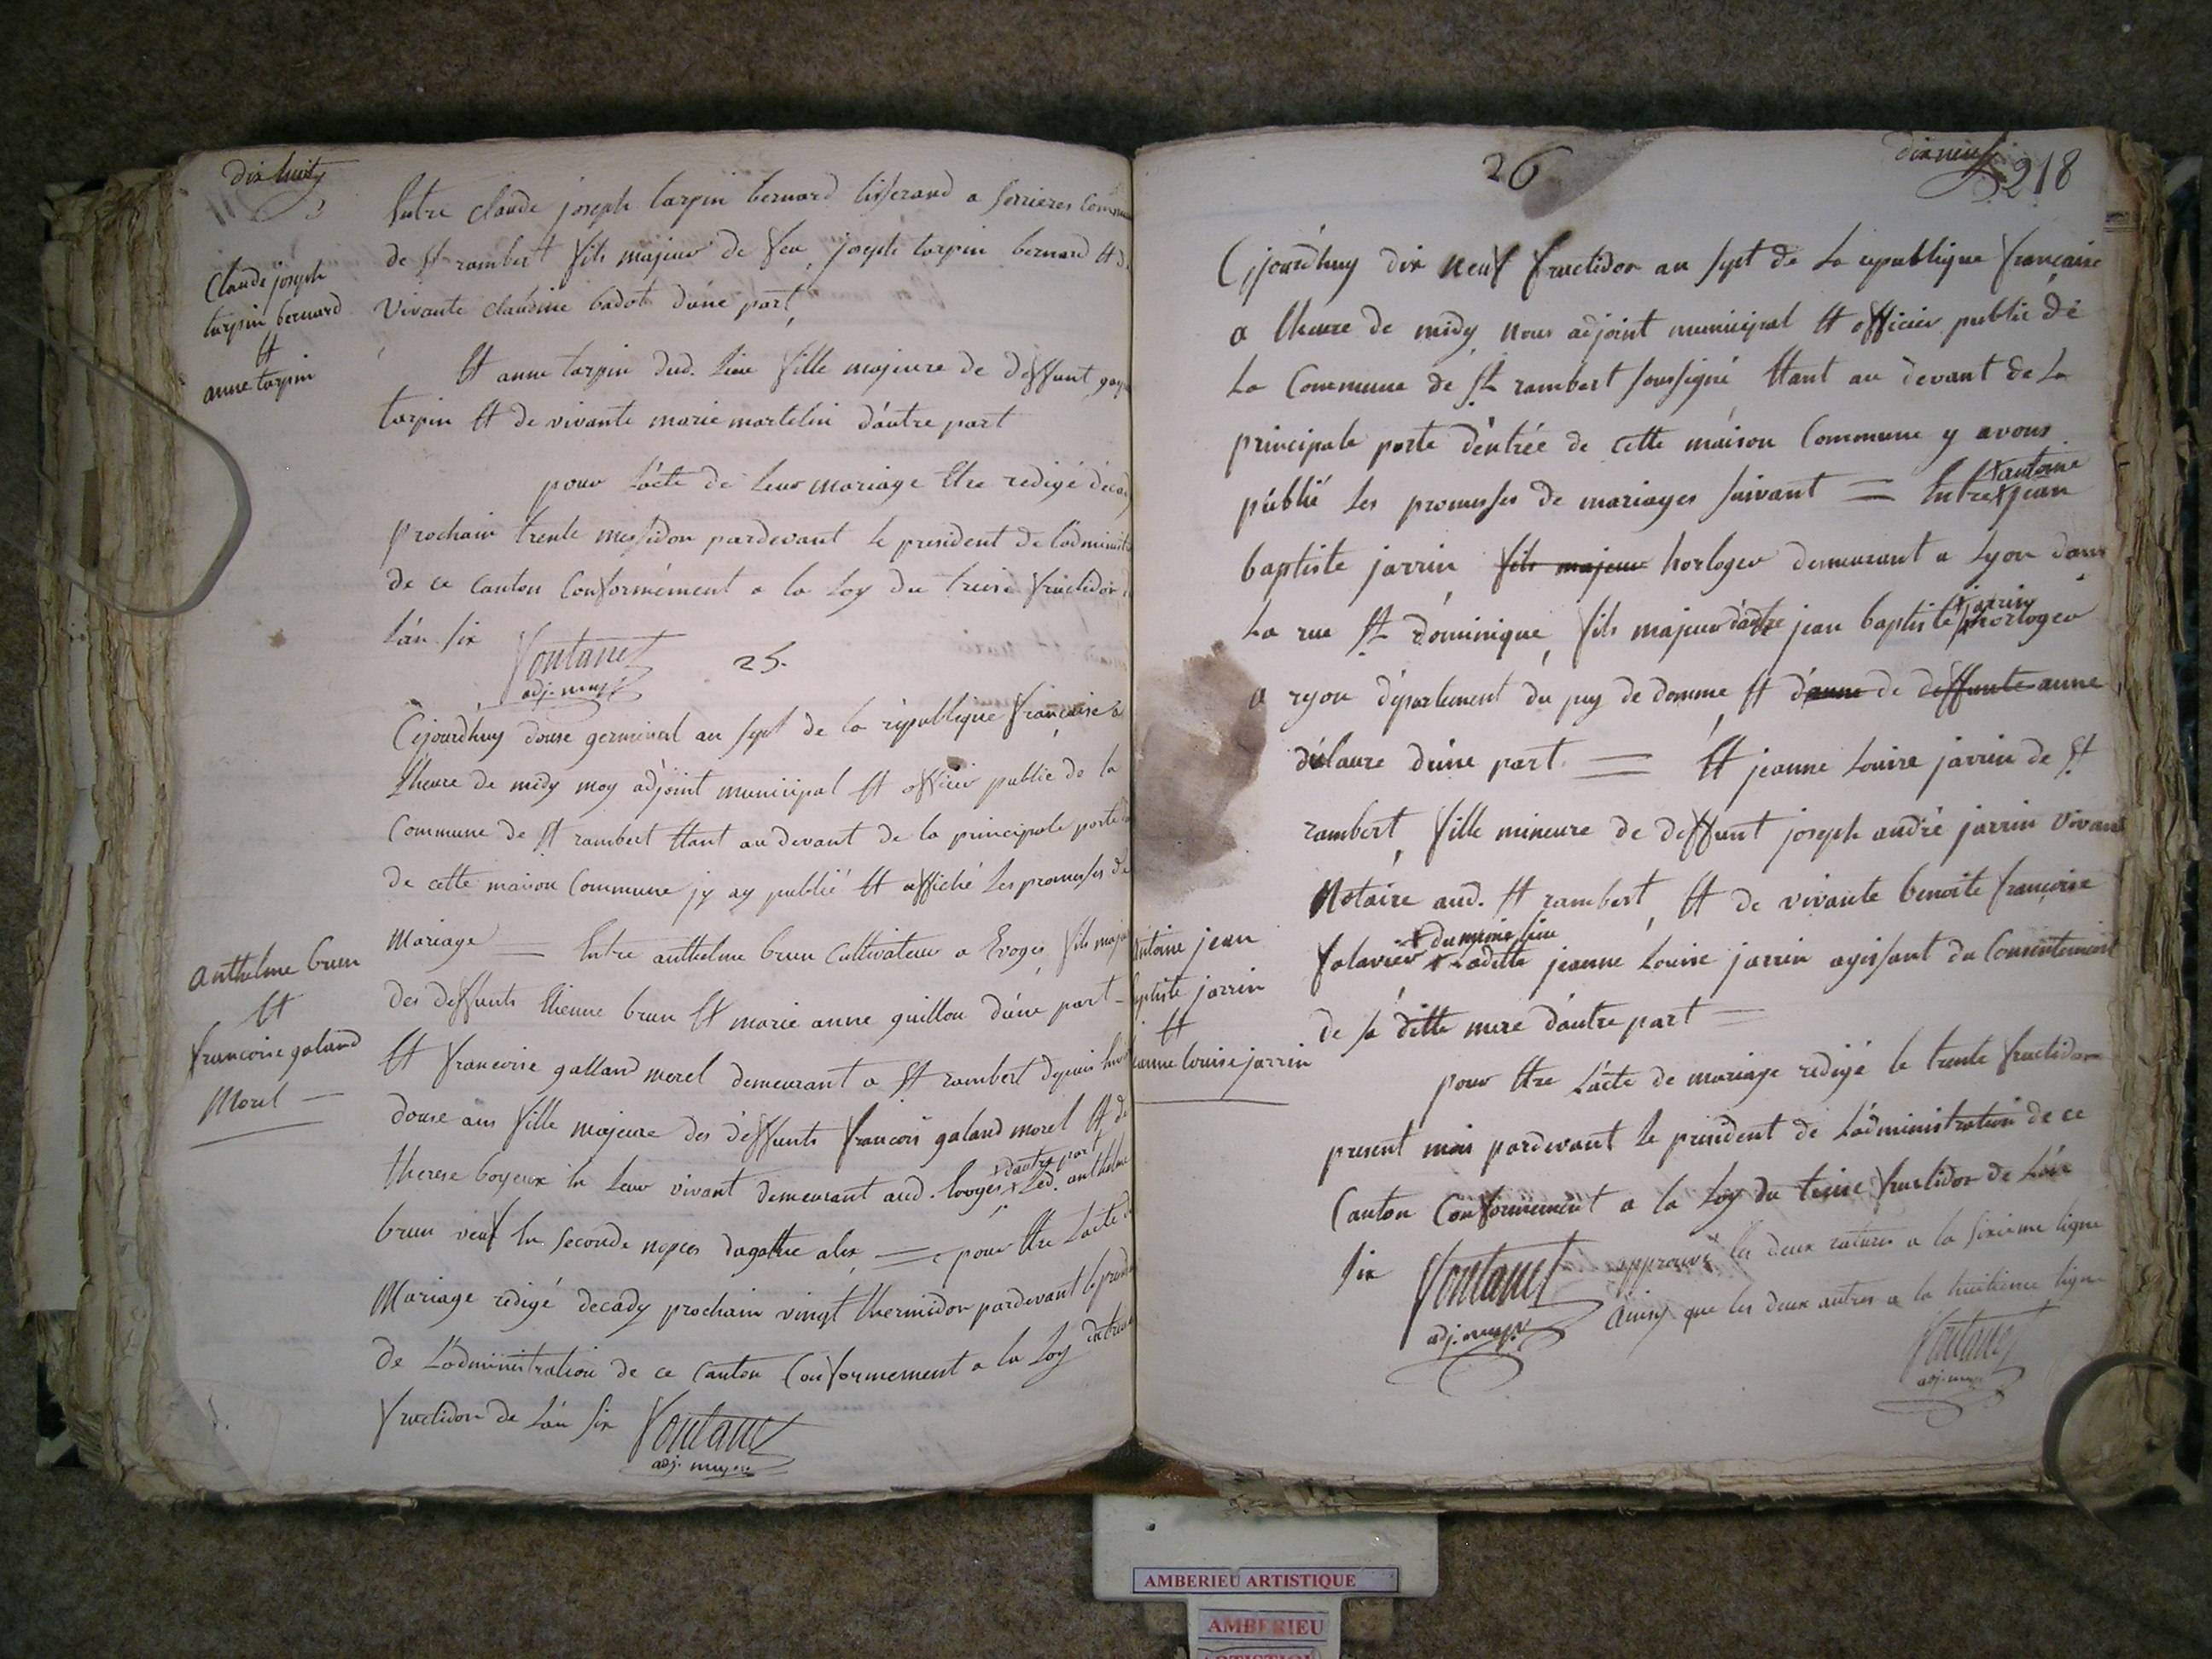 dix huit
Claude joseph
tarpin bernard
Et
anne tarpin
Entre claude joseph tarpin bernard tisserand a serrieres Commu
de St rambert fils majeur de feu joseph tarpin bernard Et de
vivante claudine badot d'une part
Et anne tarpin dud. Lieu fille majeure de deffunt
tarpin Et de vivante marie martelin d'autre part
pour L'acte de Leur mariage Etre redigé decady
prochain trente messidor pardevant Le president de L'administra
de ce canton Conformément a la Loy du treize fructidor
L'an six
Fontanet
adj. mupl
25.
Cejourdhuy douse germinal an sept de la république française a
L'heure de midy moy adjoint municipal Et officier public de la
Commune de St rambert Etant au devant de la principale porte
de cette maison Commune jy ay publié Et affiché Les promesses de
Mariage = Entre anthelme brun Cultivateur a Evoges fils maje
des deffunts Etienne brun Et marie anne guillon d'une part
Et francoise galland morel demeurant a St rambert depuis
douse ans fille majeure des deffunts francois galand morel Et de
therese boyeux En Leur vivant demeurant aud. Evoges x d'autre part x Led. anthelme
brun veuf En seconde nopces d'agathe alex = pour Etre L'acte de
Mariage redigé decady prochain vingt thermidor pardevant le presid
de L'administration de ce canton Conformement a la Loy du treize
fructidor de L'an six
Fontanet
adj. mupl
anthelme brun
Et
francoise galand
Morel
26
dix neuf
218
Cejourdhuy dix neuf fructidor an sept de La republique française
a L'heure de midy nous adjoint municipal Et officier public de
La Commune de St rambert soussigné Etant au devant de La
principale porte d'entrée de cette maison Commune y avons
publié Les promesses de mariages suivant = Entre x antoine jean
baptiste jarrin fils majeur horloger demeurant a Lyon dans
La rue St dominique, fils majeur d'autre jean baptiste x jarrin horloger
a ryon departement du puy de domme, Et d'anne de deffunte anne
delaure d'une part = Et jeanne Louise jarrin de St
rambert, fille mineure de deffunt joseph andré jarrin vivant
Notaire aud. St rambert, Et de vivante benoite françoise
falavier x du meme lieu x Laditte jeanne Louise jarrin agissant du Consentement
de sa ditte mere d'autre part =
pour Etre L'acte de mariage redigé le trente fructidor
present mois pardevant Le president de L'administration de ce
Canton Conformement a la Loy du treise fructidor de L'an
six
Fontanet
adj. mupl
approuvé les deux ratures a la sixieme ligne
ainsy que les deux autres a la huitieme ligne
Fontanet
adj. mupl
antoine jean
baptiste jarrin
Et
jeanne louise jarrin
AMBERIEU ARTISTIQUE
AMBERIEU
ARTISTIQUE